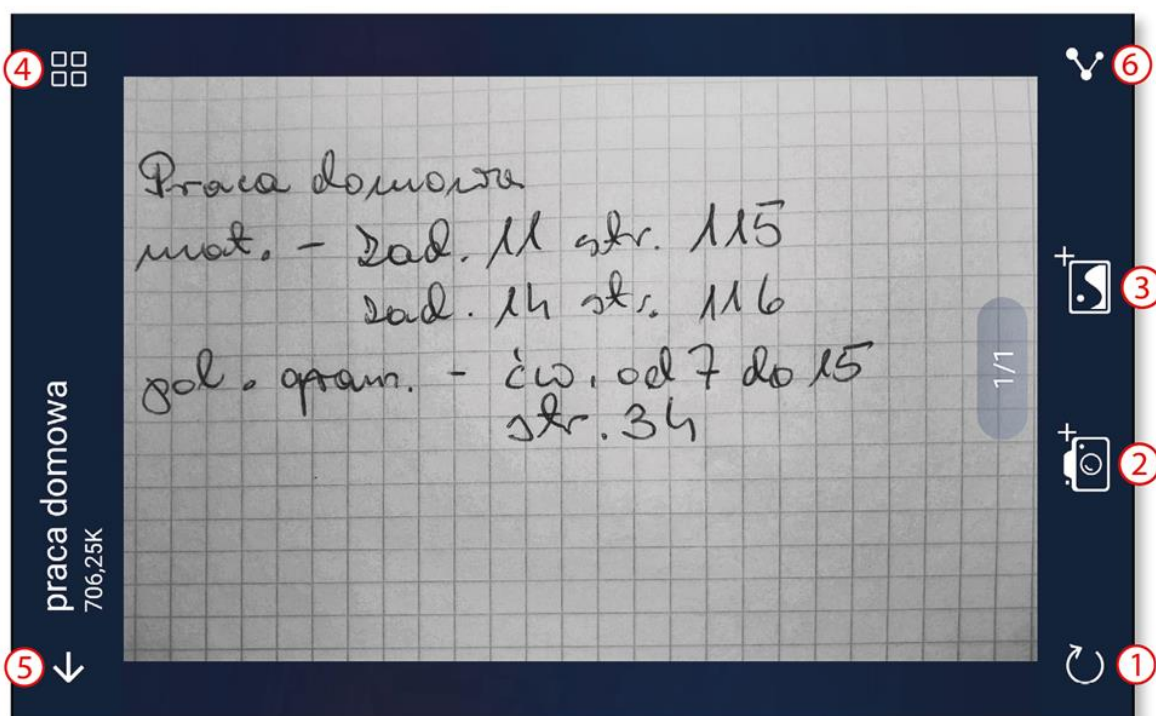 4
6
Praca domowa
mat. - zad. 11 str. 115
zad. 14 str. 116
pol. gram. - ćw. od 7 do 15
str. 34
3
1/1
2
praca domowa
706,25K
5
1